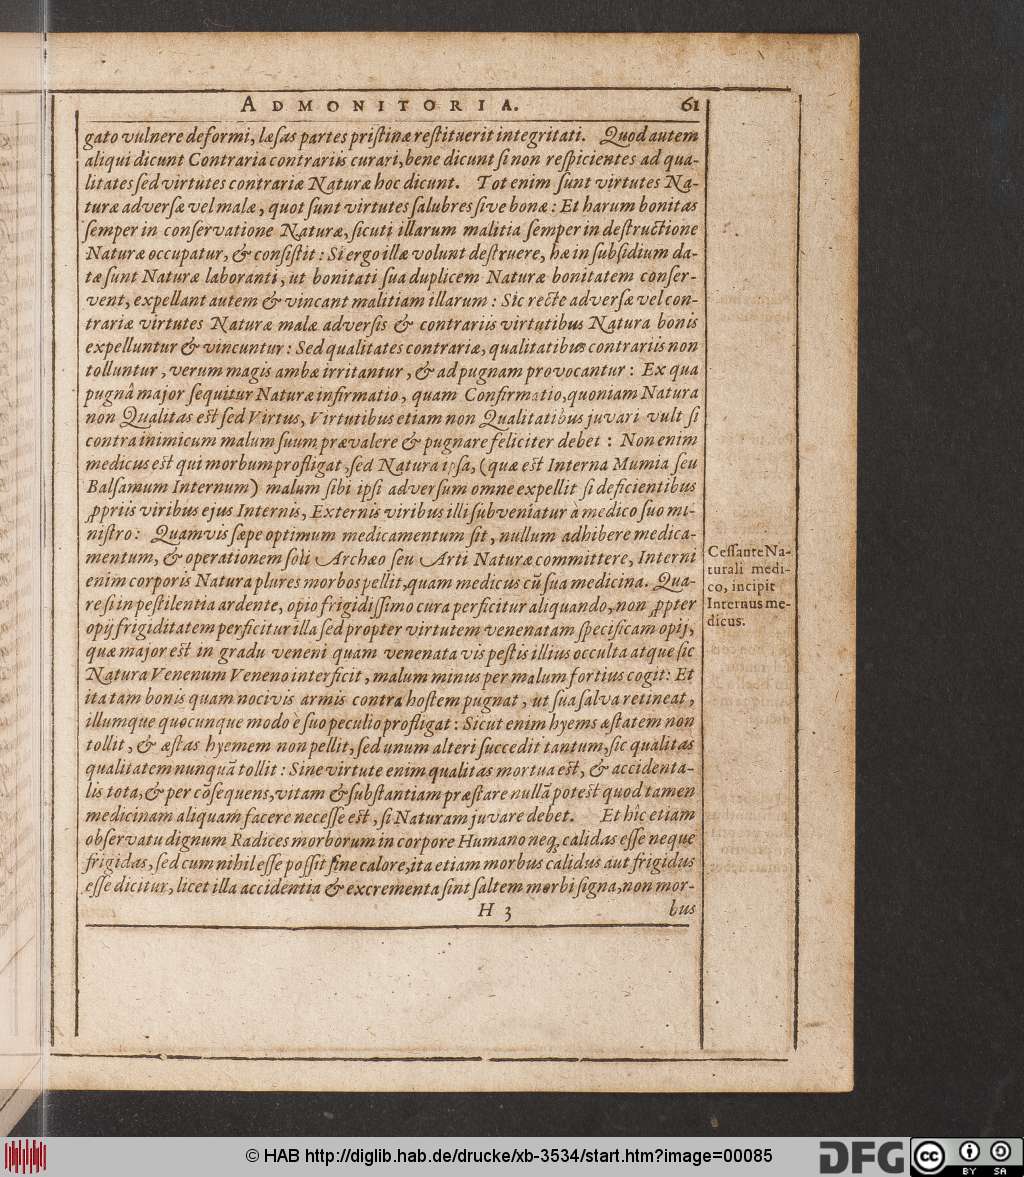 ADMONITORIA. 61
gato vulnere deformi, læſas partes priſtinæ reſtituerit integritati. Quod autem
aliqui dicunt Contraria contrariis curari, bene dicunt ſi non reſpicientes ad qua-
litates ſed virtutes contrariæ Naturæ hoc dicunt. Tot enim ſunt virtutes Na-
turæ adverſæ vel malæ, quot ſunt virtutes ſalubres ſive bonæ: Et harum bonitas
ſemper in conſervatione Naturæ, ſicuti illarum malitia ſemper in deſtructione
Naturæ occupatur, & conſiſtit: Si ergo illæ volunt deſtruere, hæ in ſubſidium da-
tæ ſunt Naturæ laboranti, ut bonitati ſua duplicem Naturæ bonitatem conſer-
vent, expellant autem & vincant malitiam illarum: Sic recte adverſæ vel con-
trariæ virtutes Naturæ malæ adverſis & contrariis virtutibus Natura bonis
expelluntur & vincuntur: Sed qualitates contrariæ, qualitatibus contrariis non
tolluntur, verum magis ambæ irritantur, & ad pugnam provocantur: Ex qua
pugnâ major ſequitur Naturæ infirmatio, quam Confirmatio, quoniam Natura
non Qualitas eſt ſed Virtus, Virtutibus etiam non Qualitatibus juvari vult ſi
contra inimicum malum ſuum prævalere & pugnare feliciter debet: Non enim
medicus eſt qui morbum profligat, ſed Natura ipſa, (quæ eſt Interna Mumia ſeu
Balſamum Internum) malum ſibi ipſi adverſum omne expellit ſi deficientibus
ꝓpriis viribus ejus Internis, Externis viribus illi ſubveniatur à medico ſuo mi-
niſtro: Quamvis ſæpe optimum medicamentum ſit, nullum adhibere medica-
mentum, & operationem ſoli Archæo ſeu Arti Naturæ committere, Interni
enim corporis Natura plures morbos pellit, quam medicus cũ ſua medicina. Qua-
re ſi in peſtilentia ardente, opio frigidiſſimo cura perficitur aliquando, non ꝓpter
opij frigiditatem perficitur illa ſed propter virtutem venenatam ſpecificam opij,
quæ major eſt in gradu veneni quam venenata vis peſtis illius occulta atque ſic
Natura Venenum Veneno interficit, malum minus per malum fortius cogit: Et
ita tam bonis quam nocivis armis contra hoſtem pugnat, ut ſua ſalva retineat,
illumque quocunque modo è ſuo peculio profligat: Sicut enim hyems æſtatem non
tollit, & æſtas hyemem non pellit, ſed unum alteri ſuccedit tantum, ſic qualitas
qualitatem nunquã tollit: Sine virtute enim qualitas mortua eſt, & accidenta-
lis tota, & per cõſequens, vitam & ſubſtantiam præſtare nullã poteſt quod tamen
medicinam aliquam facere neceſſe eſt, ſi Naturam juvare debet. Et hîc etiam
obſervatu dignum Radices morborum in corpore Humano neq; calidas eſſe neque
frigidas, ſed cum nihil eſſe poſſit ſine calore, ita etiam morbus calidus aut frigidus
eſſe dicitur, licet illa accidentia & excrementa ſint ſaltem morbi ſigna, non mor-
H 3 bus
Ceſſante Na-
turali medi-
co, incipit
Internus me-
dicus.
© HAB http://diglib.hab.de/drucke/xb-3534/start.htm?image=00085
DFG
cc BY SA